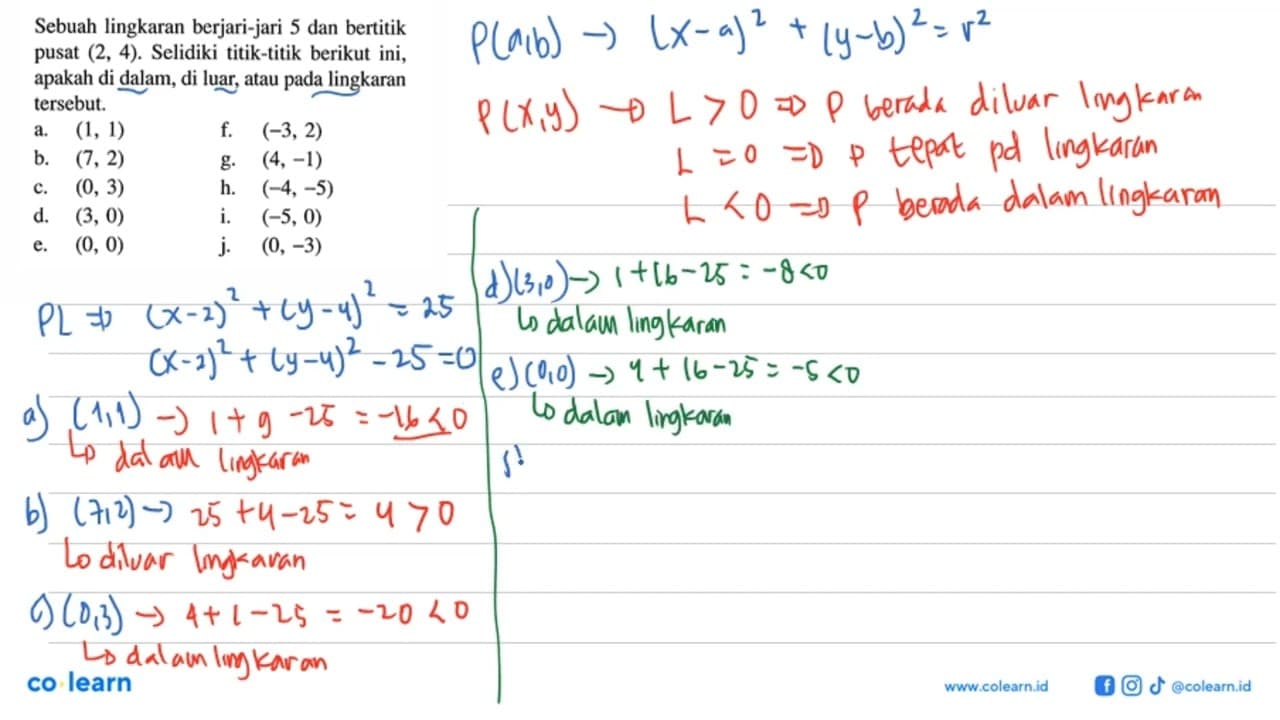 Sebuah lingkaran berjari-jari 5 dan bertitik
pusat (2, 4). Selidiki titik-titik berikut ini,
apakah di dalam, di luar, atau pada lingkaran
tersebut.
a. (1, 1) f. (–3, 2)
b. (7, 2) g. (4, –1)
c. (0, 3) h. (–4, –5)
d. (3, 0) i. (–5, 0)
e. (0, 0) j. (0, –3)
P(a,b) → (x-a)² + (y-b)² = r²
P(x,y) → L > 0 ⇒ P berada diluar lingkaran
L = 0 ⇒ P tepat pd lingkaran
L < 0 ⇒ P berada dalam lingkaran
PL ⇒ (x-2)² + (y-4)² = 25
(x-2)² + (y-4)² - 25 = 0
a) (1,1) → 1 + 9 - 25 = -16 < 0
↳ dalam lingkaran
b) (7,2) → 25 + 4 - 25 = 4 > 0
↳ diluar lingkaran
c) (0,3) → 4 + 1 - 25 = -20 < 0
↳ dalam lingkaran
d) (3,0) → 1 + 16 - 25 = -8 < 0
↳ dalam lingkaran
e) (0,0) → 4 + 16 - 25 = -5 < 0
↳ dalam lingkaran
co learn
www.colearn.id @colearn.id